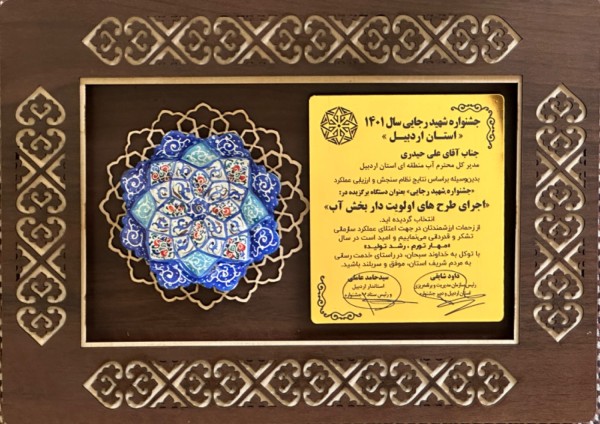 جشنواره شهید رجایی سال ۱۴۰۱
« استان اردبیل »
جناب آقای علی حیدری
مدیر کل محترم آب منطقه ای استان اردبیل
بدینوسیله براساس نتایج نظام سنجش و ارزیابی عملکرد
«جشنواره شهید رجایی» بعنوان دستگاه برگزیده در:
«اجرای طرح های اولویت دار بخش آب»
انتخاب گردیده اید.
از زحمات ارزشمندتان در جهت اعتلای عملکرد سازمانی
تشکر و قدردانی می‌نماییم و امید است در سال
«مهار تورم ، رشد تولید»
با توکل به خداوند سبحان، در راستای خدمت رسانی
به مردم شریف استان، موفق و سربلند باشید.
داود شایقی
رئیس سازمان مدیریت و برنامه‌ریزی
استان اردبیل و دبیر جشنواره
سیدحامد عاملی
استاندار اردبیل
و رئیس ستاد جشنواره